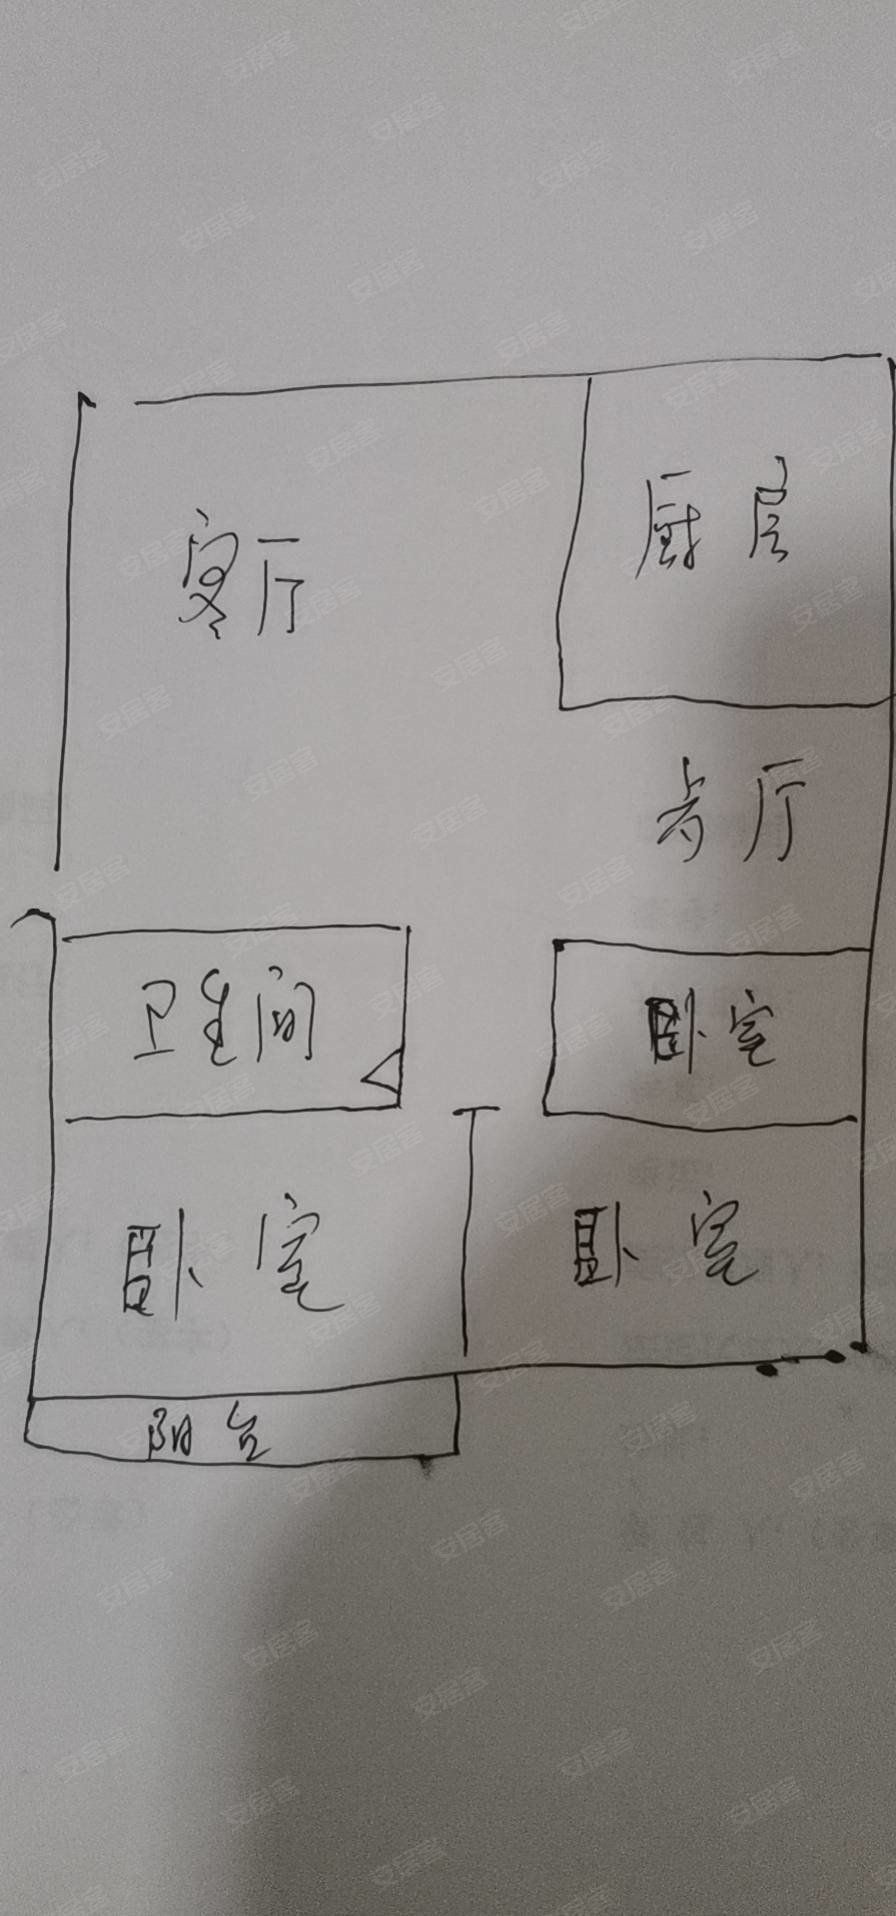 客厅
厨房
歺厅
卫生间
卧室
卧室
卧室
阳台
安居客